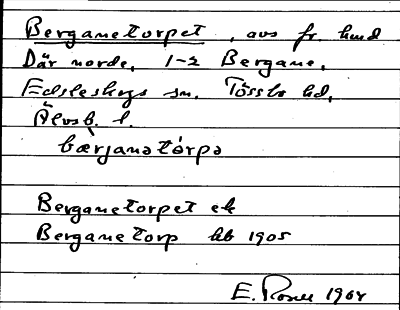 Berganetorpet, avs fr. hmd
Där norde, 1-2 Bergane,
Edsleskogs sn. Tössbo hd,
Älvsb. l.
bærjanətórpə
Berganetorpet ek
Berganetorp hb 1905
E. Rosell 1968